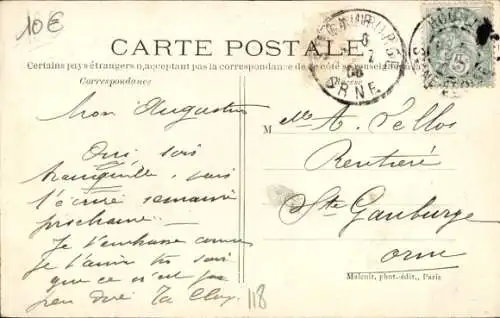 10€
CARTE POSTALE
Certains pays étrangers n'acceptant pas la correspondance de ce côté se renseigner
Correspondance
Mon Augustin
Oui sois
tranquille, vais
t'écrire semaine
prochaine
Je t'embrasse comme
je t'aime tu sais
que ce n'est pas
peu dire Ta
118
ORNE
M elle A. Vellos
Rentière
Ste Gauburge
Orne
Malcuit, phot.-édit., Paris
5